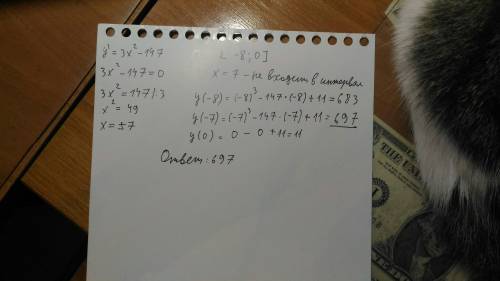 y' = 3x² - 147
3x² - 147 = 0
3x² = 147 /:3
x² = 49
x = ±7
[-8; 0]
x = 7 - не входит в интервал
y(-8) = (-8)³ - 147·(-8) + 11 = 683
y(-7) = (-7)³ - 147·(-7) + 11 = 697
y(0) = 0 - 0 + 11 = 11
Ответ: 697